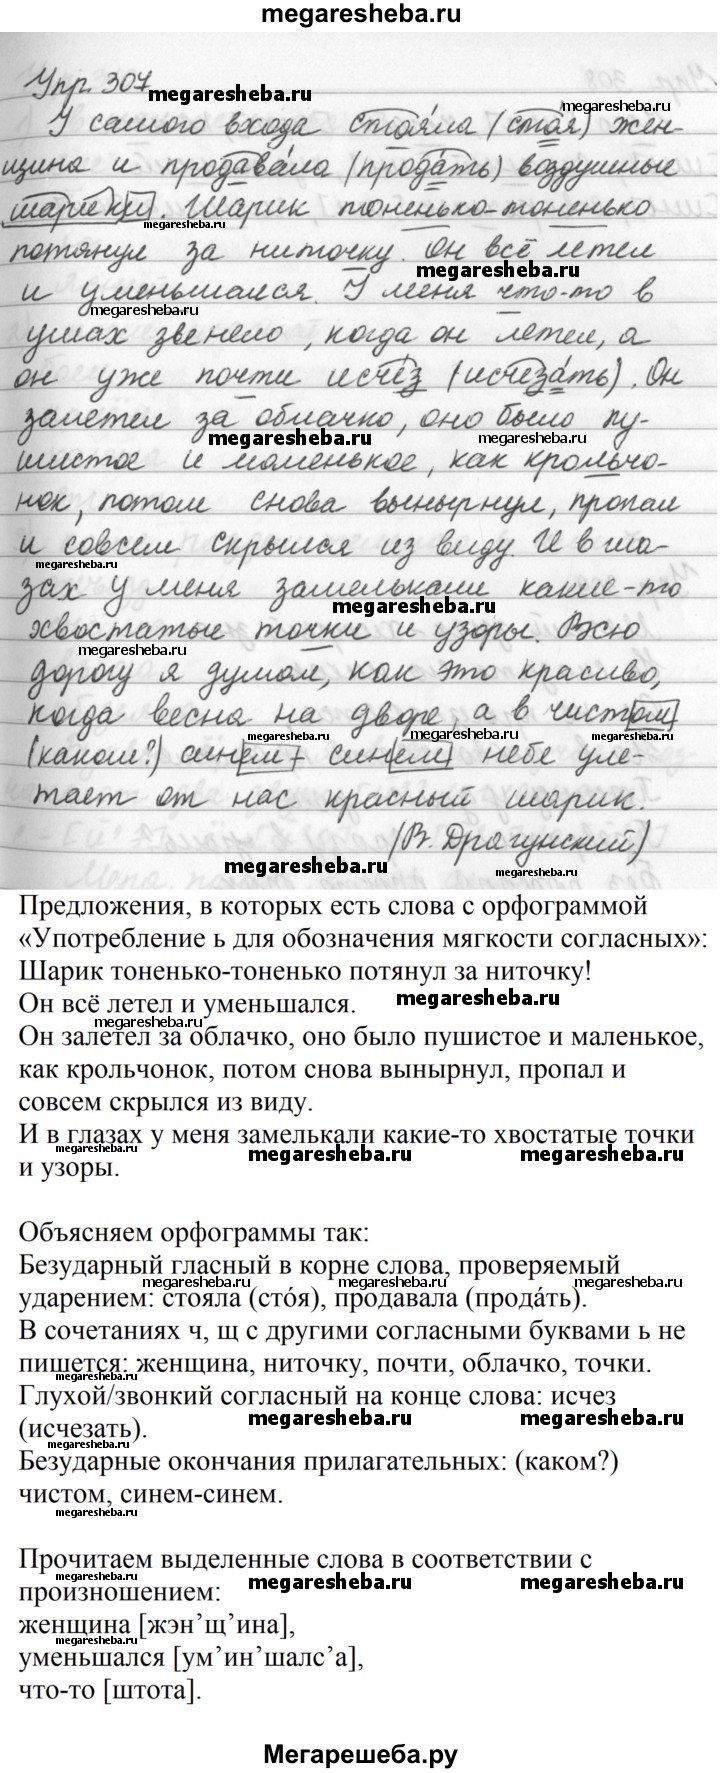 megaresheba.ru
Упр. 307
megaresheba.ru
У самого входа стоя́ла (сто́я) жен-
megaresheba.ru
щина и продава́ла (прода́ть) воздушные
шарики. Шарик тоненько-тоненько
megaresheba.ru
megaresheba.ru
потянул за ниточку. Он всё летел
megaresheba.ru
и уменьшался. У меня что-то в
megaresheba.ru
ушах звенело, когда он летел, а
он уже почти исчез (исчеза́ть). Он
залетел за облачко, оно было пу-
megaresheba.ru
megaresheba.ru
шистое и маленькое, как крольчо-
нок, потом снова вынырнул, пропал
и совсем скрылся из виду. И в гла-
megaresheba.ru
зах у меня замелькали какие-то
megaresheba.ru
хвостатые точки и узоры. Всю
megaresheba.ru
дорогу я думал, как это красиво,
когда весна на дворе, а в чистом
megaresheba.ru
megaresheba.ru
megaresheba.ru
(каком?) синем-синем небе уле-
тает от нас красный шарик.
(В. Драгунский)
megaresheba.ru
megaresheba.ru
Предложения, в которых есть слова с орфограммой
«Употребление ь для обозначения мягкости согласных»:
Шарик тоненько-тоненько потянул за ниточку!
Он всё летел и уменьшался.
megaresheba.ru
megaresheba.ru
Он залетел за облачко, оно было пушистое и маленькое,
как крольчонок, потом снова вынырнул, пропал и
совсем скрылся из виду.
И в глазах у меня замелькали какие-то хвостатые точки
megaresheba.ru
megaresheba.ru
megaresheba.ru
и узоры.
Объясняем орфограммы так:
Безударный гласный в корне слова, проверяемый
megaresheba.ru
megaresheba.ru
megaresheba.ru
ударением: стояла (сто́я), продавала (прода́ть).
В сочетаниях ч, щ с другими согласными буквами ь не
пишется: женщина, ниточку, почти, облачко, точки.
Глухой/звонкий согласный на конце слова: исчез
megaresheba.ru
megaresheba.ru
(исчезать).
megaresheba.ru
Безударные окончания прилагательных: (каком?)
чистом, синем-синем.
megaresheba.ru
Прочитаем выделенные слова в соответствии с
произношением:
megaresheba.ru
megaresheba.ru
женщина [жэн’щ’ина],
megaresheba.ru
уменьшался [ум’ин’шалс’а],
что-то [штота].
Мегарешеба.ру